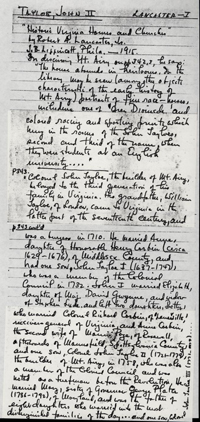 TAYLOE, JOHN II LANCASTER-I
"Historic Virginia Homes and Churches
by Robert A. Lancaster, Jr.
J.B. Lippincott Phila. — 1915.
In discussing Mt. Airy on p. 343, he says:
"The home abounds in heirlooms. In the
library may be seen among other objects
characteristic of the early history of
Mt. Airy, portraits of fine race-horses,
including one of Grey Diomede, and
colored racing and sporting prints, which
hung in the rooms of the John Tayloes,
second and third of the name, when
they were students at an English
university...."
p343.
Colonel John Tayloe, the builder of Mt. Airy,
belonged to the third generation of his
family in Virginia. His grandfather, William
Tayloe, of London, came to Virginia in the
latter part of the seventeenth century, and
p. 343
was a burgess in 1710. He married Anne,
daughter of Honorable Henry Corbin (circa
1629-1676), of Middlesex County, and
had one son, John Tayloe I (1687-1747),
who was a member of the Colonial
Council in 1732. John I married Elizabeth,
daughter of Maj. David Gwynne, and widow
of Stephen Lyde, and left two daughters, Betty,
who married Colonel Richard Corbin, of Laneville,
receiver-general of Virginia, and Anne Corbin,
the second wife of Mann Page, of
afterwards of Mannsfield, Spotts. County,
and one son Colonel John Tayloe II (1721-1779),
the builder of Mt. Airy in 1758, who was also
a member of the Colonial Council, and was
noted as a turfman before the Revolution. He
married daughter of Governor George Plater
of Maryland, and was the father of
eight daughters who married into the most
distinguished families of the day—and one son, John